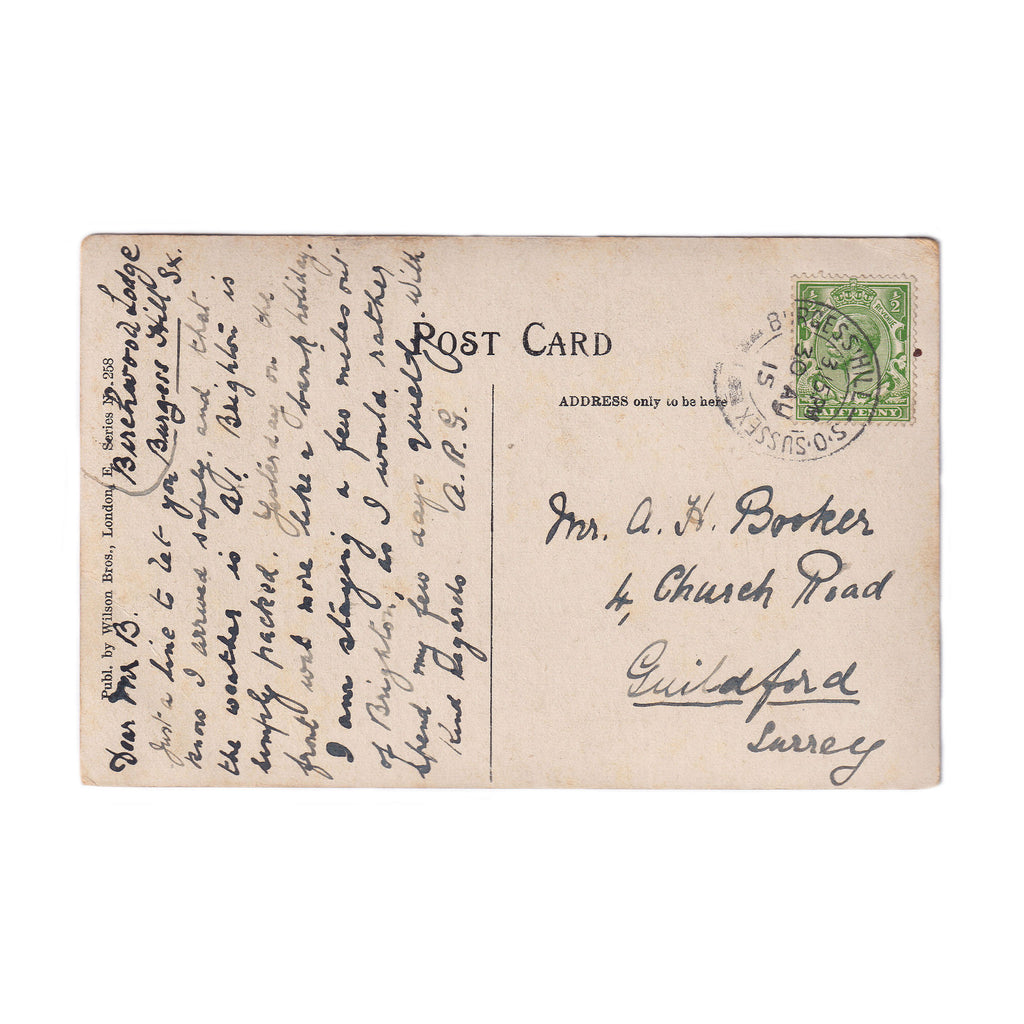 POST CARD
ADDRESS only to be here
Publ. by Wilson Bros., London, E. Series No. 258
Birchwood Lodge
Burgess Hill Sx.
Dear Mr B.
Just a line to let you
know I arrived safely, and that
the weather is A1. Brighton is
simply packed. Yesterday on the
front was more like a bank holiday.
I am staying a few miles out
of Brighton, as I would rather
spend my few days quietly. With
Kind Regards A.R.G.
½ ½
REVENUE
HALFPENNY
BURGESS HILL S.O. SUSSEX
3.15PM
30 AU
15
Mr. A. H. Booker
4, Church Road
Guildford
Surrey